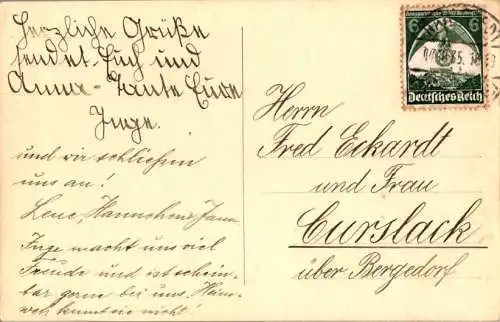 Herzliche Grüße
sendet Euch und
Anna-Tante Eure
Inge.
und wir schließen
uns an!
Lene, Hannchen,
Inge macht uns viel
Freude und ist schein-
bar gern bei uns, Heim-
weh kennt sie nicht!
6 6
Deutsches Reich
Herrn
Fred Eckardt
und Frau
Curslack
über Bergedorf